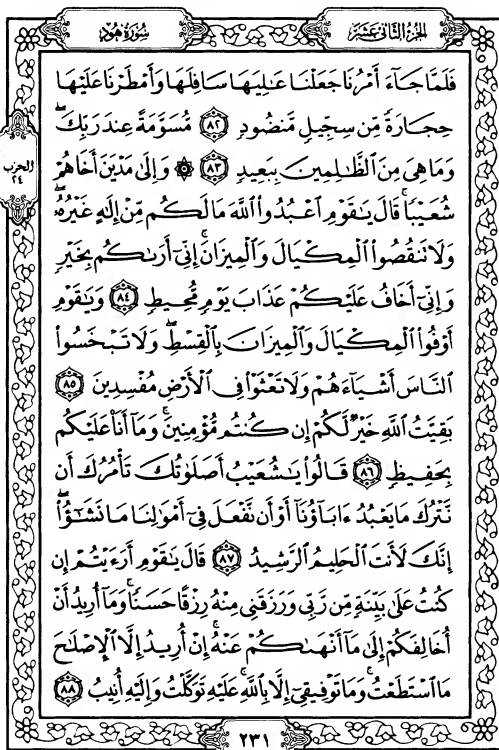 الجزء الثاني عشر
سورة هود
فَلَمَّا جَآءَ أَمْرُنَا جَعَلْنَا عَٰلِيَهَا سَافِلَهَا وَأَمْطَرْنَا عَلَيْهَا
حِجَارَةً مِّن سِجِّيلٍ مَّنضُودٍ ﴿٨٢﴾ مُّسَوَّمَةً عِندَ رَبِّكَ ۖ
وَمَا هِىَ مِنَ ٱلظَّٰلِمِينَ بِبَعِيدٍ ﴿٨٣﴾ ۞ وَإِلَىٰ مَدْيَنَ أَخَاهُمْ
شُعَيْبًا ۚ قَالَ يَٰقَوْمِ ٱعْبُدُوا۟ ٱللَّهَ مَا لَكُم مِّنْ إِلَٰهٍ غَيْرُهُۥ ۖ
وَلَا تَنقُصُوا۟ ٱلْمِكْيَالَ وَٱلْمِيزَانَ ۚ إِنِّىٓ أَرَىٰكُم بِخَيْرٍ
وَإِنِّىٓ أَخَافُ عَلَيْكُمْ عَذَابَ يَوْمٍ مُّحِيطٍ ﴿٨٤﴾ وَيَٰقَوْمِ
أَوْفُوا۟ ٱلْمِكْيَالَ وَٱلْمِيزَانَ بِٱلْقِسْطِ ۖ وَلَا تَبْخَسُوا۟
ٱلنَّاسَ أَشْيَآءَهُمْ وَلَا تَعْثَوْا۟ فِى ٱلْأَرْضِ مُفْسِدِينَ ﴿٨٥﴾
بَقِيَّتُ ٱللَّهِ خَيْرٌ لَّكُمْ إِن كُنتُم مُّؤْمِنِينَ ۚ وَمَآ أَنَا۠ عَلَيْكُم
بِحَفِيظٍ ﴿٨٦﴾ قَالُوا۟ يَٰشُعَيْبُ أَصَلَوٰتُكَ تَأْمُرُكَ أَن
نَّتْرُكَ مَا يَعْبُدُ ءَابَآؤُنَآ أَوْ أَن نَّفْعَلَ فِىٓ أَمْوَٰلِنَا مَا نَشَٰٓؤُا۟ ۖ
إِنَّكَ لَأَنتَ ٱلْحَلِيمُ ٱلرَّشِيدُ ﴿٨٧﴾ قَالَ يَٰقَوْمِ أَرَءَيْتُمْ إِن
كُنتُ عَلَىٰ بَيِّنَةٍ مِّن رَّبِّى وَرَزَقَنِى مِنْهُ رِزْقًا حَسَنًا ۚ وَمَآ أُرِيدُ أَنْ
أُخَالِفَكُمْ إِلَىٰ مَآ أَنْهَىٰكُمْ عَنْهُ ۚ إِنْ أُرِيدُ إِلَّا ٱلْإِصْلَٰحَ
مَا ٱسْتَطَعْتُ ۚ وَمَا تَوْفِيقِىٓ إِلَّا بِٱللَّهِ ۚ عَلَيْهِ تَوَكَّلْتُ وَإِلَيْهِ أُنِيبُ ﴿٨٨﴾
الحزب
٢٤
٢٣١